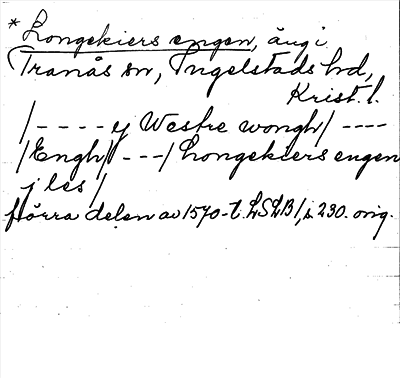 * Longekiers engen, äng i
Tranås sn, Ingelstads hd,
Krist. l.
/---- y Westre wongh/ ----
/Engh/ ---/ Longekiers engen
j les/
förra delen av 1570-t. LSLB 1, s. 230. orig.